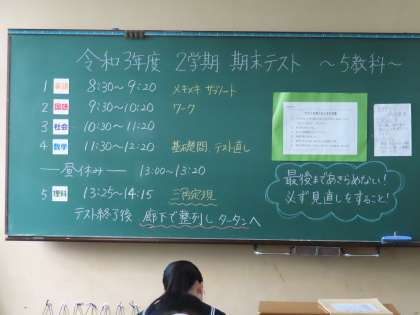 令和3年度 2学期 期末テスト 〜5教科〜
1 英語 8:30〜9:20
2 国語 9:30〜10:20 ワーク
3 社会 10:20〜11:20
4 数学 11:30〜12:20 基礎問 テスト直し
昼休み 13:00〜13:20
5 理科 13:25〜14:15 三角定規
テスト終了後 廊下で整列し タータンへ
最後まであきらめない!
必ず見直しをすること!